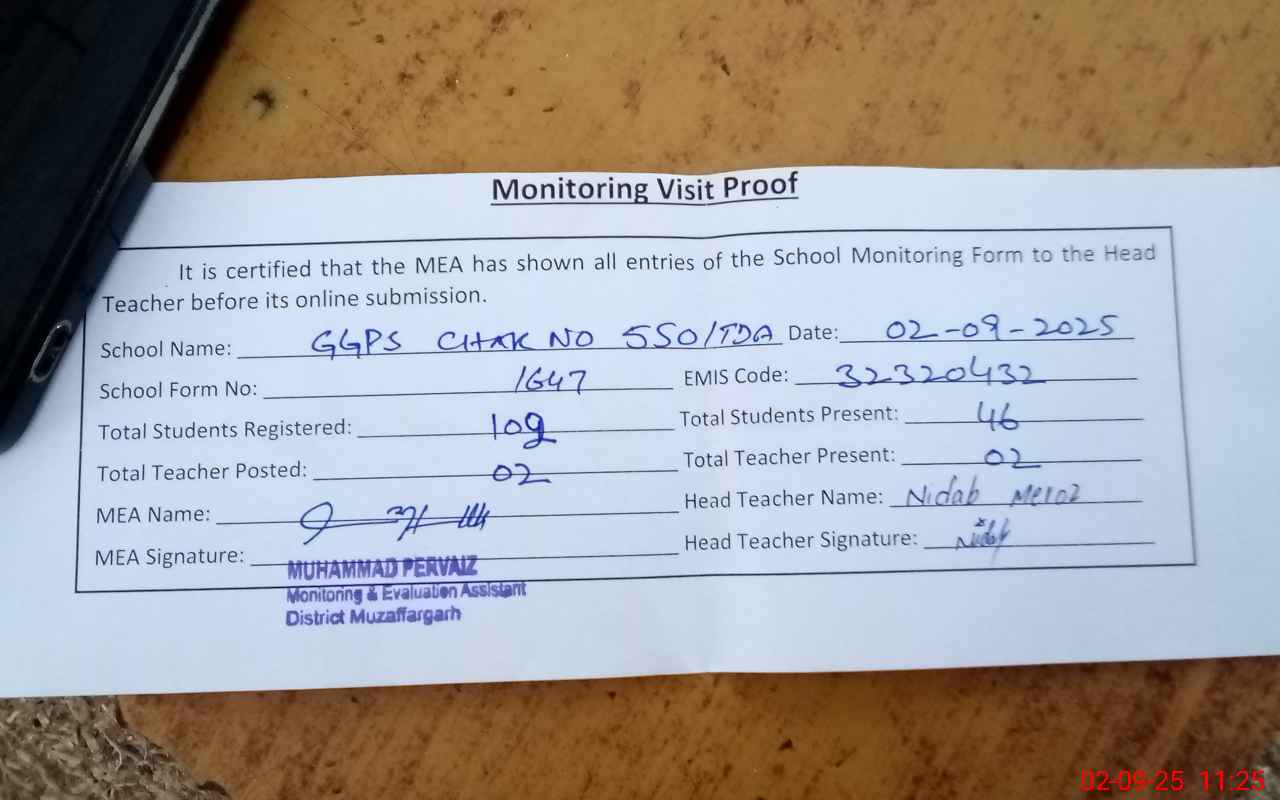 Monitoring Visit Proof
It is certified that the MEA has shown all entries of the School Monitoring Form to the Head
Teacher before its online submission.
School Name: GGPS CHAK NO 550/TDA Date: 02-09-2025
School Form No: 1647 EMIS Code: 32320432
Total Students Registered: 109 Total Students Present: 46
Total Teacher Posted: 02 Total Teacher Present: 02
MEA Name: Head Teacher Name: Nidab
MEA Signature: Head Teacher Signature: Nidab
MUHAMMAD PERVAIZ
Monitoring & Evaluation Assistant
District Muzaffargarh
02-09-25 11:25